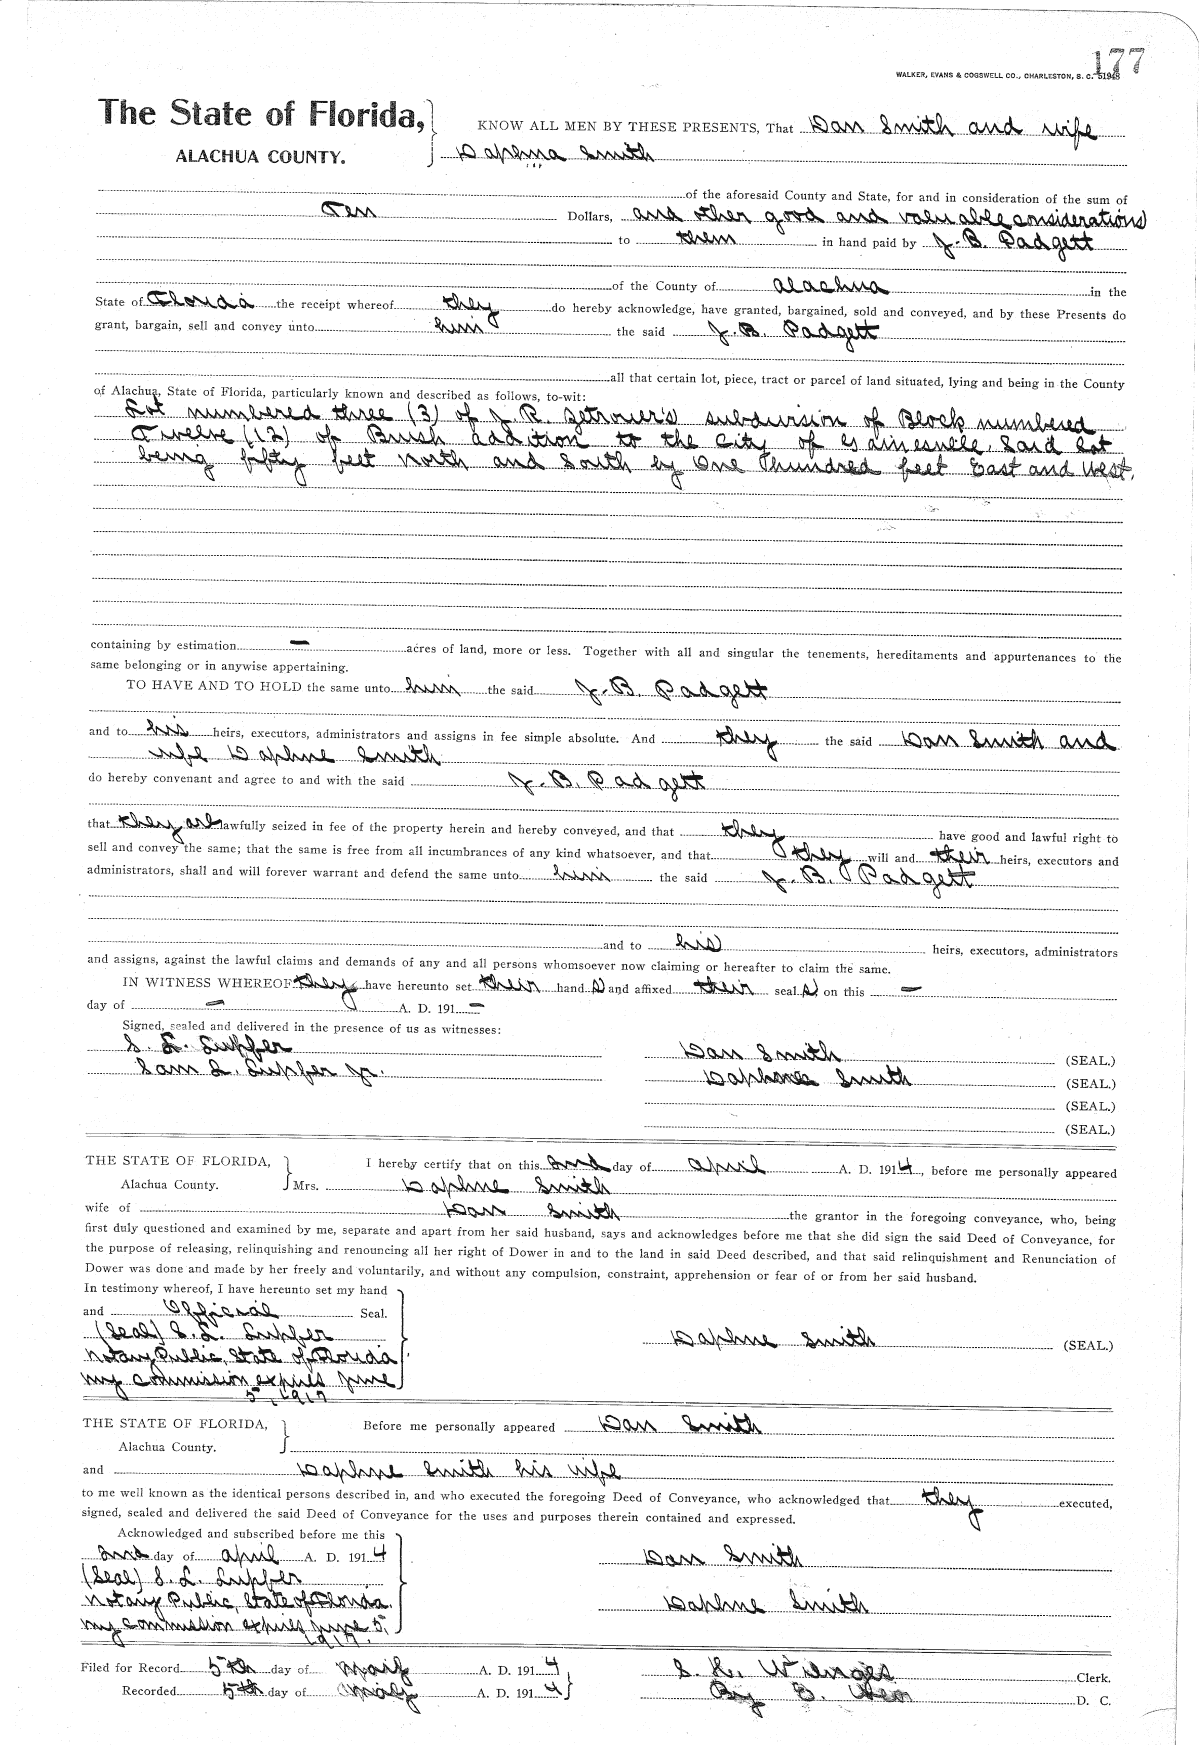 177
WALKER, EVANS & COGSWELL CO., CHARLESTON, S. C. 51948
The State of Florida,
ALACHUA COUNTY.
KNOW ALL MEN BY THESE PRESENTS, That Dan Smith and wife
Daphna Smith
of the aforesaid County and State, for and in consideration of the sum of
Ten Dollars, and other good and valuable considerations
to them in hand paid by J. B. Padgett
of the County of Alachua in the
State of Florida the receipt whereof they do hereby acknowledge, have granted, bargained, sold and conveyed, and by these Presents do
grant, bargain, sell and convey unto him the said J. B. Padgett
all that certain lot, piece, tract or parcel of land situated, lying and being in the County
of Alachua, State of Florida, particularly known and described as follows, to-wit:
Lot numbered three (3) of J. R. Zetrouer's subdivision of Block numbered
Twelve (12) of Brush addition to the City of Gainesville, Said Lot
being fifty feet North and South by One Hundred feet East and West.
containing by estimation — acres of land, more or less. Together with all and singular the tenements, hereditaments and appurtenances to the
same belonging or in anywise appertaining.
TO HAVE AND TO HOLD the same unto him the said J. B. Padgett
and to his heirs, executors, administrators and assigns in fee simple absolute. And they the said Dan Smith and
wife Daphne Smith
do hereby convenant and agree to and with the said J. B. Padgett
that they are lawfully seized in fee of the property herein and hereby conveyed, and that they have good and lawful right to
sell and convey the same; that the same is free from all incumbrances of any kind whatsoever, and that they will and their heirs, executors and
administrators, shall and will forever warrant and defend the same unto him the said J. B. Padgett
and to his heirs, executors, administrators
and assigns, against the lawful claims and demands of any and all persons whomsoever now claiming or hereafter to claim the same.
IN WITNESS WHEREOF they have hereunto set their hand s and affixed their seal s on this —
day of — A. D. 191 —
Signed, sealed and delivered in the presence of us as witnesses:
S. L. Lupfer
Dan Smith (SEAL.)
Sam L. Lupfer Jr.
Daphne Smith (SEAL.)
(SEAL.)
(SEAL.)
THE STATE OF FLORIDA,
Alachua County.
I hereby certify that on this 2nd day of April A. D. 1914, before me personally appeared
Mrs. Daphne Smith
wife of Dan Smith the grantor in the foregoing conveyance, who, being
first duly questioned and examined by me, separate and apart from her said husband, says and acknowledges before me that she did sign the said Deed of Conveyance, for
the purpose of releasing, relinquishing and renouncing all her right of Dower in and to the land in said Deed described, and that said relinquishment and Renunciation of
Dower was done and made by her freely and voluntarily, and without any compulsion, constraint, apprehension or fear of or from her said husband.
In testimony whereof, I have hereunto set my hand
and Official Seal.
(Seal) S. L. Lupfer
Daphne Smith (SEAL.)
Notary Public, State of Florida
my commission expires June
5, 1917
THE STATE OF FLORIDA,
Alachua County.
Before me personally appeared Dan Smith
and Daphne Smith his wife
to me well known as the identical persons described in, and who executed the foregoing Deed of Conveyance, who acknowledged that they executed,
signed, sealed and delivered the said Deed of Conveyance for the uses and purposes therein contained and expressed.
Acknowledged and subscribed before me this
2nd day of April A. D. 1914
Dan Smith
(Seal) S. L. Lupfer
Notary Public, State of Florida.
Daphne Smith
my commission expires June 5,
1917.
Filed for Record 5th day of May A. D. 1914
S. H. Wienges Clerk.
Recorded 5th day of May A. D. 1914
By E. D. C.